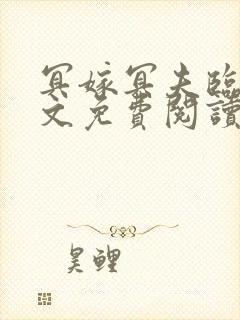 冥嫁冥夫臨
文免費閱讀
昊鯉